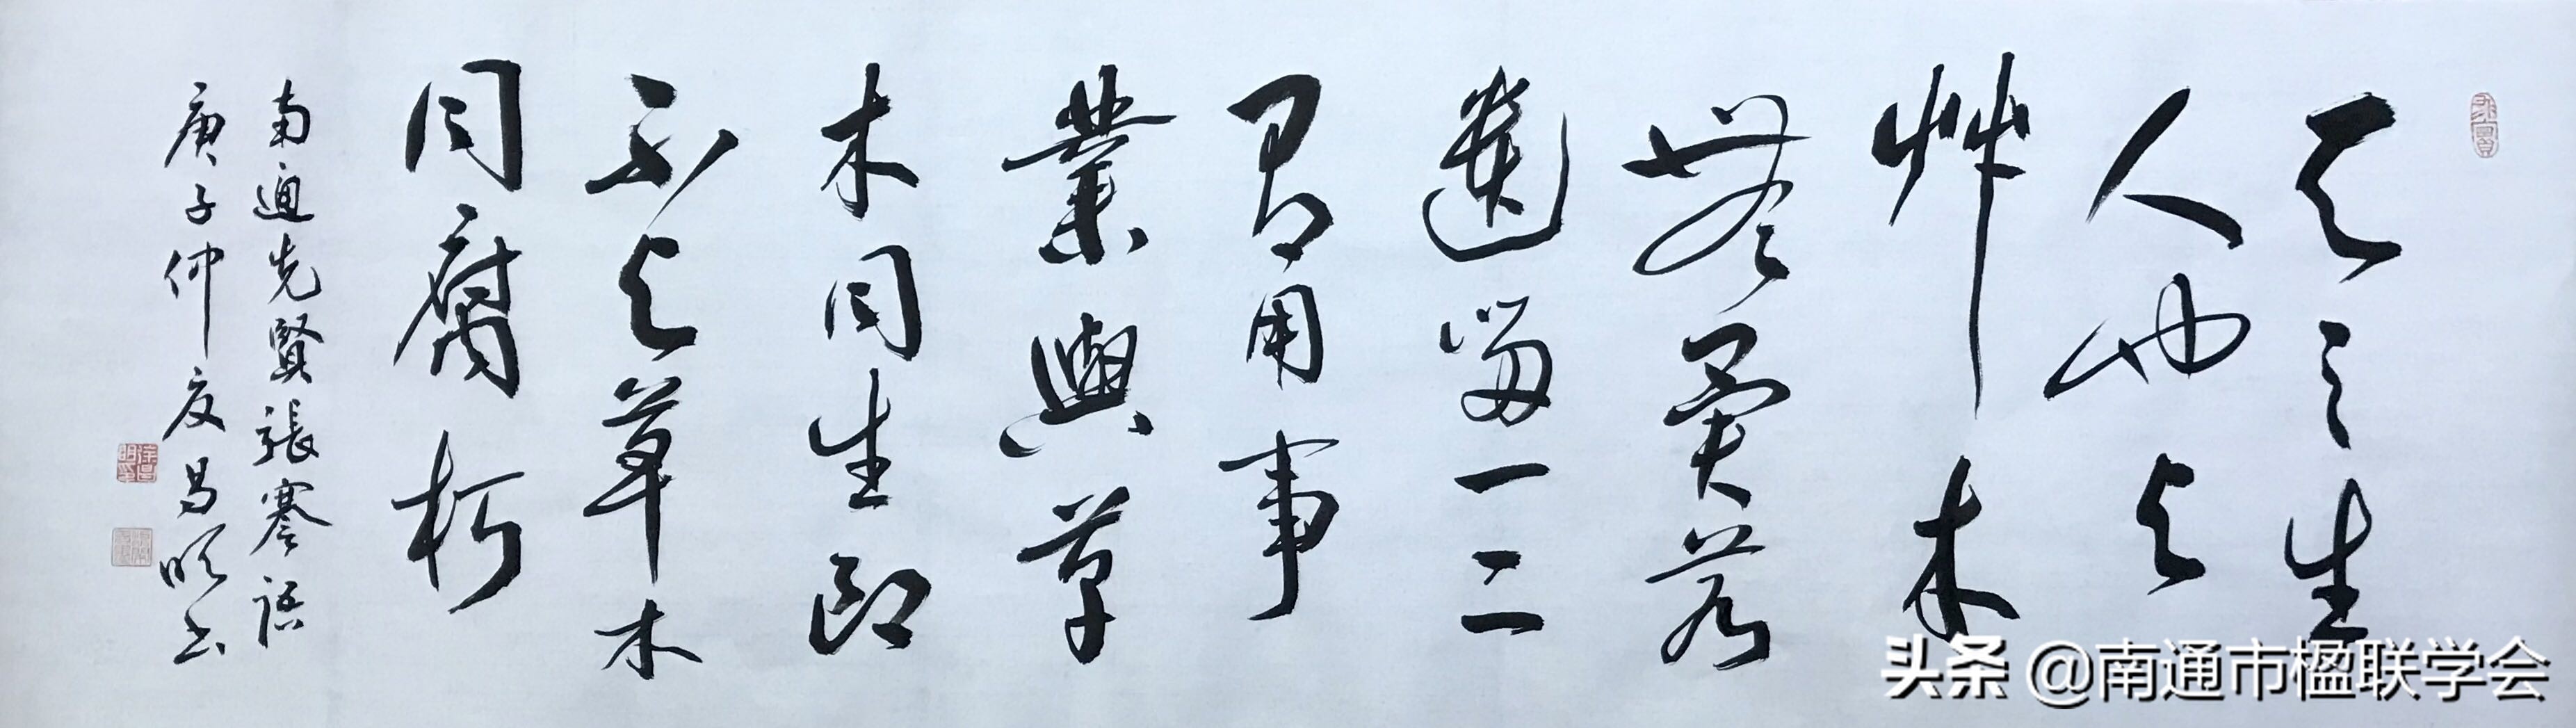 天之生
人也与
艸木
無異若
遺留一二
有用事
業與草
木同生即
不与草木
同腐朽
南通先賢張謇語
庚子仲夏昌明书
头条 @南通市楹联学会